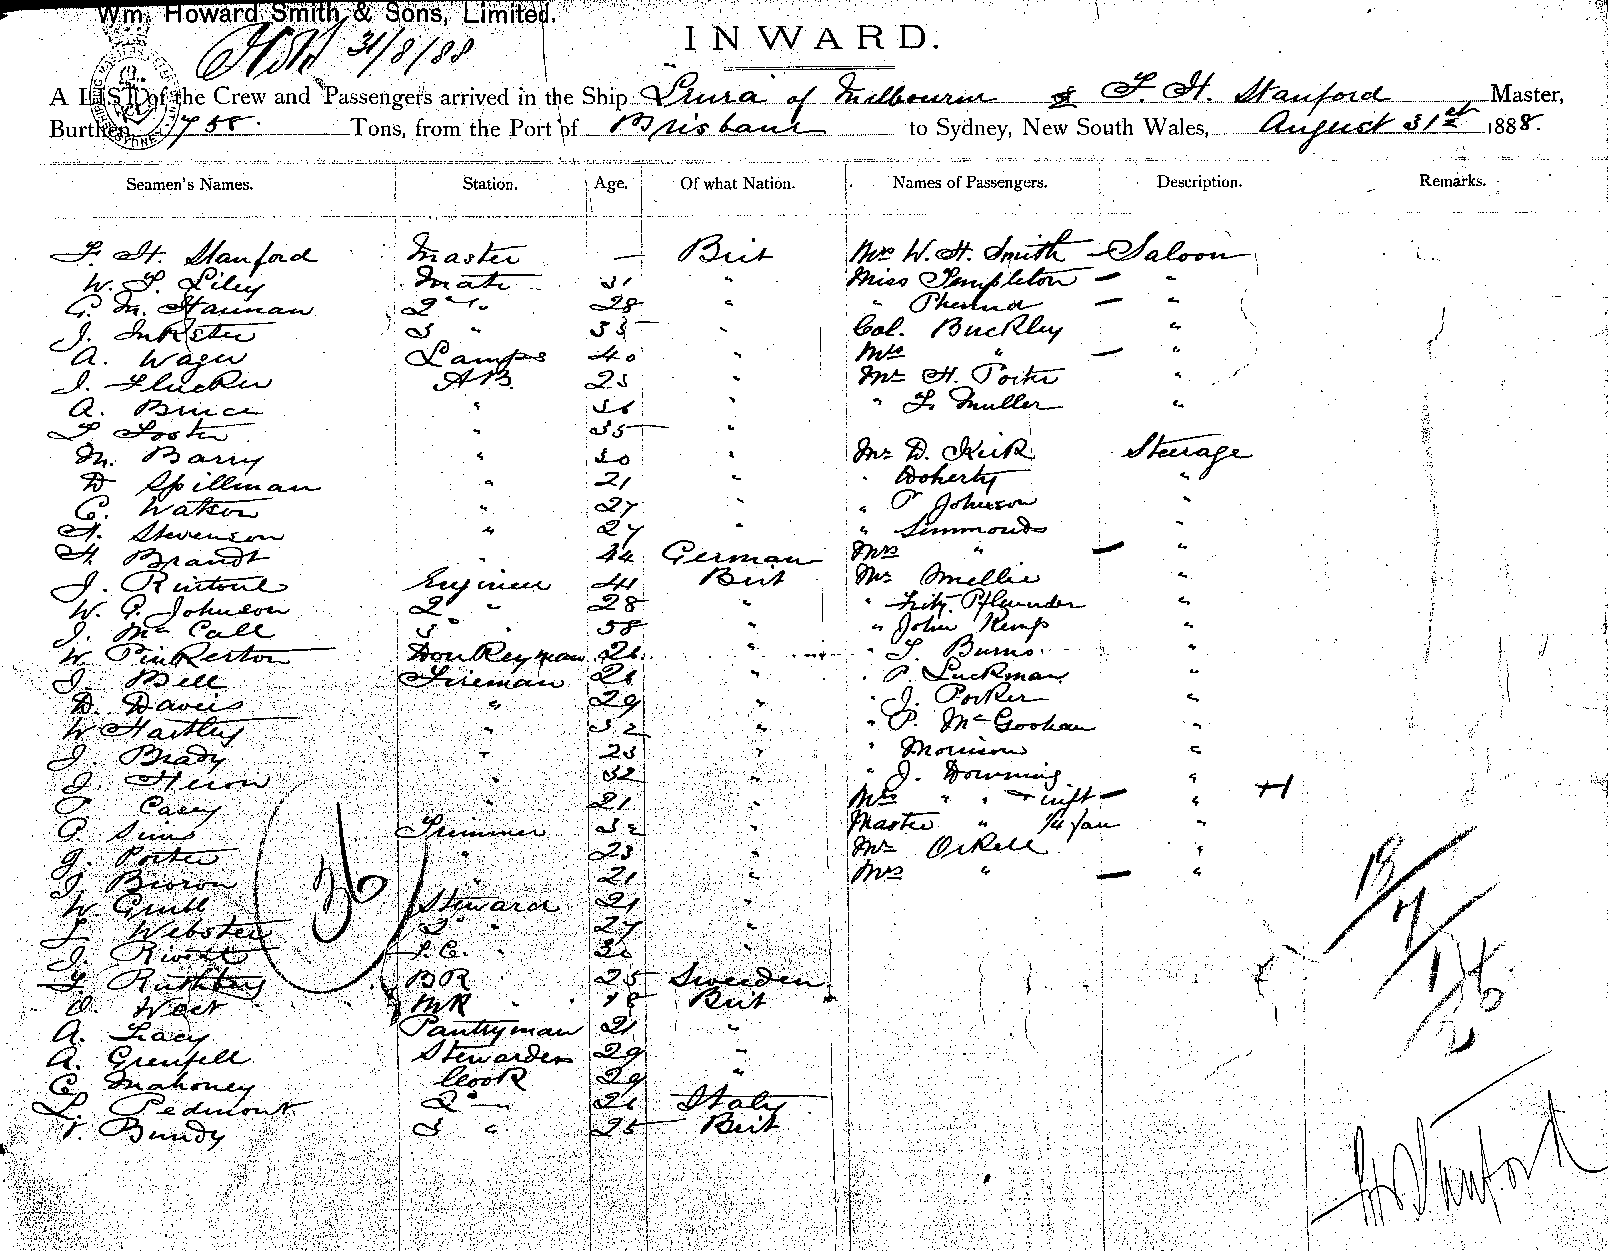 Wm. Howard Smith & Sons, Limited.
31/8/88
INWARD.
A LIST of the Crew and Passengers arrived in the Ship Leura of Melbourne F. H. Stanford Master,
Burthen 758 Tons, from the Port of Brisbane to Sydney, New South Wales, August 31st 1888.
Seamen's Names. Station. Age. Of what Nation. Names of Passengers. Description. Remarks.
F. H. Stanford Master — Brit Mrs W. H. Smith — Saloon
W. F. Liley Mate 31 " Miss Templeton — "
C. M. Hannan 2nd " 28 " " — "
J. Inkster 3 " 33 " Col. Buckley "
A. Wager Lamps 40 " Mrs " — "
J. Flucker AB 23 " Mr H. Porter "
A. Bruce " 36 " " F. Muller "
F. Foster " 35 "
M. Barry " 30 " Mr D. Kirk Steerage
D Spillman " 21 " " Doherty "
C. Watson " 27 " " P Johnson "
H. Stevenson " 27 " " Simmonds "
H. Brandt " 44 German Mrs " — "
J. Rintoul Engineer 41 Brit Mr Smellie "
W. G. Johnson 2 " 28 " " Fritz Pflaunder "
J. McCall 3 " 38 " " John Kemp "
W Pinkerton Donkeyman 26 " " T. Burns "
J. Bell Fireman 26 " " P. Luckman "
D. Davis " 29 " " J. Porker "
W Hartley " 32 " " P. McGoohan "
J. Brady " 23 " " Morrison "
J. Heron " 32 " " J. Downing "
P Casey " 21 " Mrs " " — "
P. Sims Trimmer 32 " Master " "
G. Porter " 23 " Mr Orkell "
J. " 21 " Mrs " — "
W Grill Steward 21 "
F. Webster 2 " 27 "
J. F.C. " "
F BR 25 Sweden
O. West MR 18 Brit
A. Lacy Pantryman 21 "
A. Grenfell Stewardess 29 "
C Mahoney Cook 29 "
L. Pedmont 2nd " 26 Italy
T. Bundy 3 " 25 Brit
36
19/7/1/26
2
F H Stanford